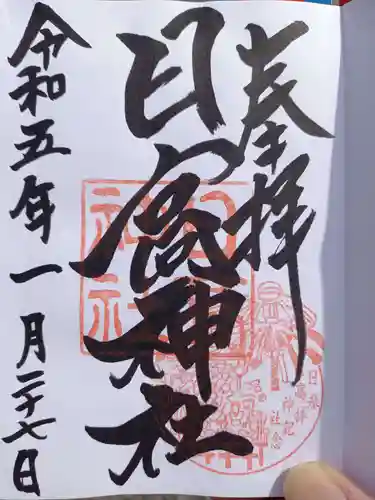 奉拝
日高神社
令和五年一月二十七日